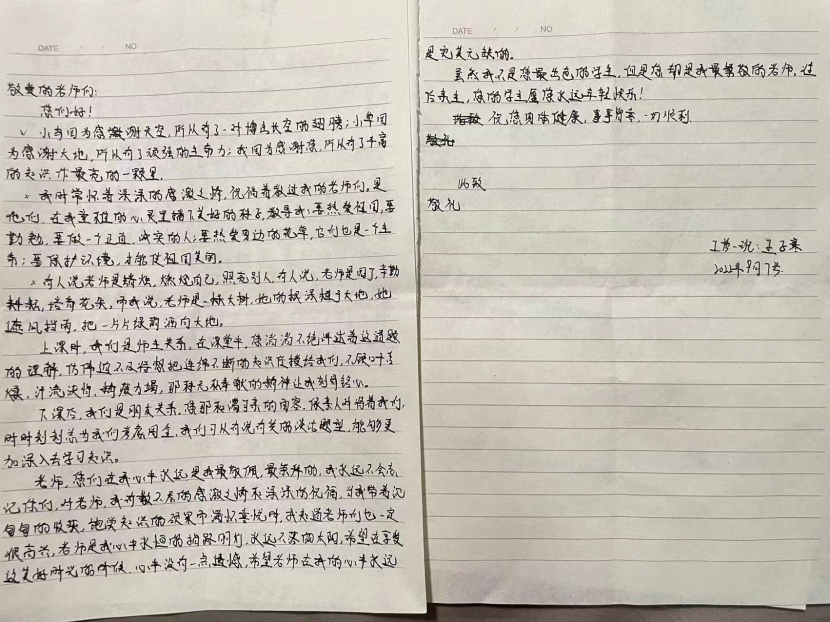 DATE / / NO
敬爱的老师们:
您们好!
小鸟因为感激谢天空,所以有了一对搏击长空的翅膀;小草因
为感谢大地,所以有了顽强的生命力;我因为感谢您,所以有了丰富
的知识,作最亮的一颗星。
我时常怀着深深的感激之情,祝福着教过我的老师们,是
他们,在我童稚的心灵里播下美好的种子,教导我:要热爱祖国,要
勤勉,要做一个正直、诚实的人;要热爱身边的花草,它们也是一个生
命;要保护环境,才能使祖国美丽。
有人说老师是蜡烛,燃烧自己,照亮别人,有人说,老师是园丁,辛勤
耕耘,培育花朵,而我说,老师是一棵大树,她的根深植于大地,她
遮风挡雨,把一片片绿荫洒向大地。
上课时,我们是师生关系,在课堂中,您滔滔不绝讲述着这道题
的理解,仿佛迫不及待想把连绵不断的知识直接给我们,不顾口干舌
燥,汗流浃背,精疲力竭,那种无私奉献的精神让我刻骨铭心。
下课后,我们是朋友关系,您那和蔼可亲的面容,像亲人伴着我们,
时时刻刻总为我们考虑周全,我们可以有说有笑的谈论题型,能够更
加深入去学习知识。
老师,您们在我心中永远是我最敬佩,最崇拜的,我永远不会忘
记你们,叶老师,我有数不尽的感激之情和深深的祝福,当我带着沉
甸甸的收获,饱尝知识的硕果而满怀喜悦时,我知道老师们也一定
很高兴,老师是我心中永恒的指路明灯,永远不落的太阳,希望在享受
这美好时光的时候,心中没有一点遗憾,希望老师在我的心中永远
DATE / / NO
是完美无缺的。
虽然我不是您最出色的学生,但是您却是我最敬的老师,过
后来生,您的学生愿您永远年轻快乐!
祝您身体健康,事事皆乐,一切顺利
此致
敬礼
2022年9月7号